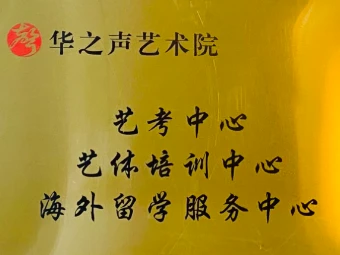 华之声艺术院
艺考中心
艺体培训中心
海外留学服务中心